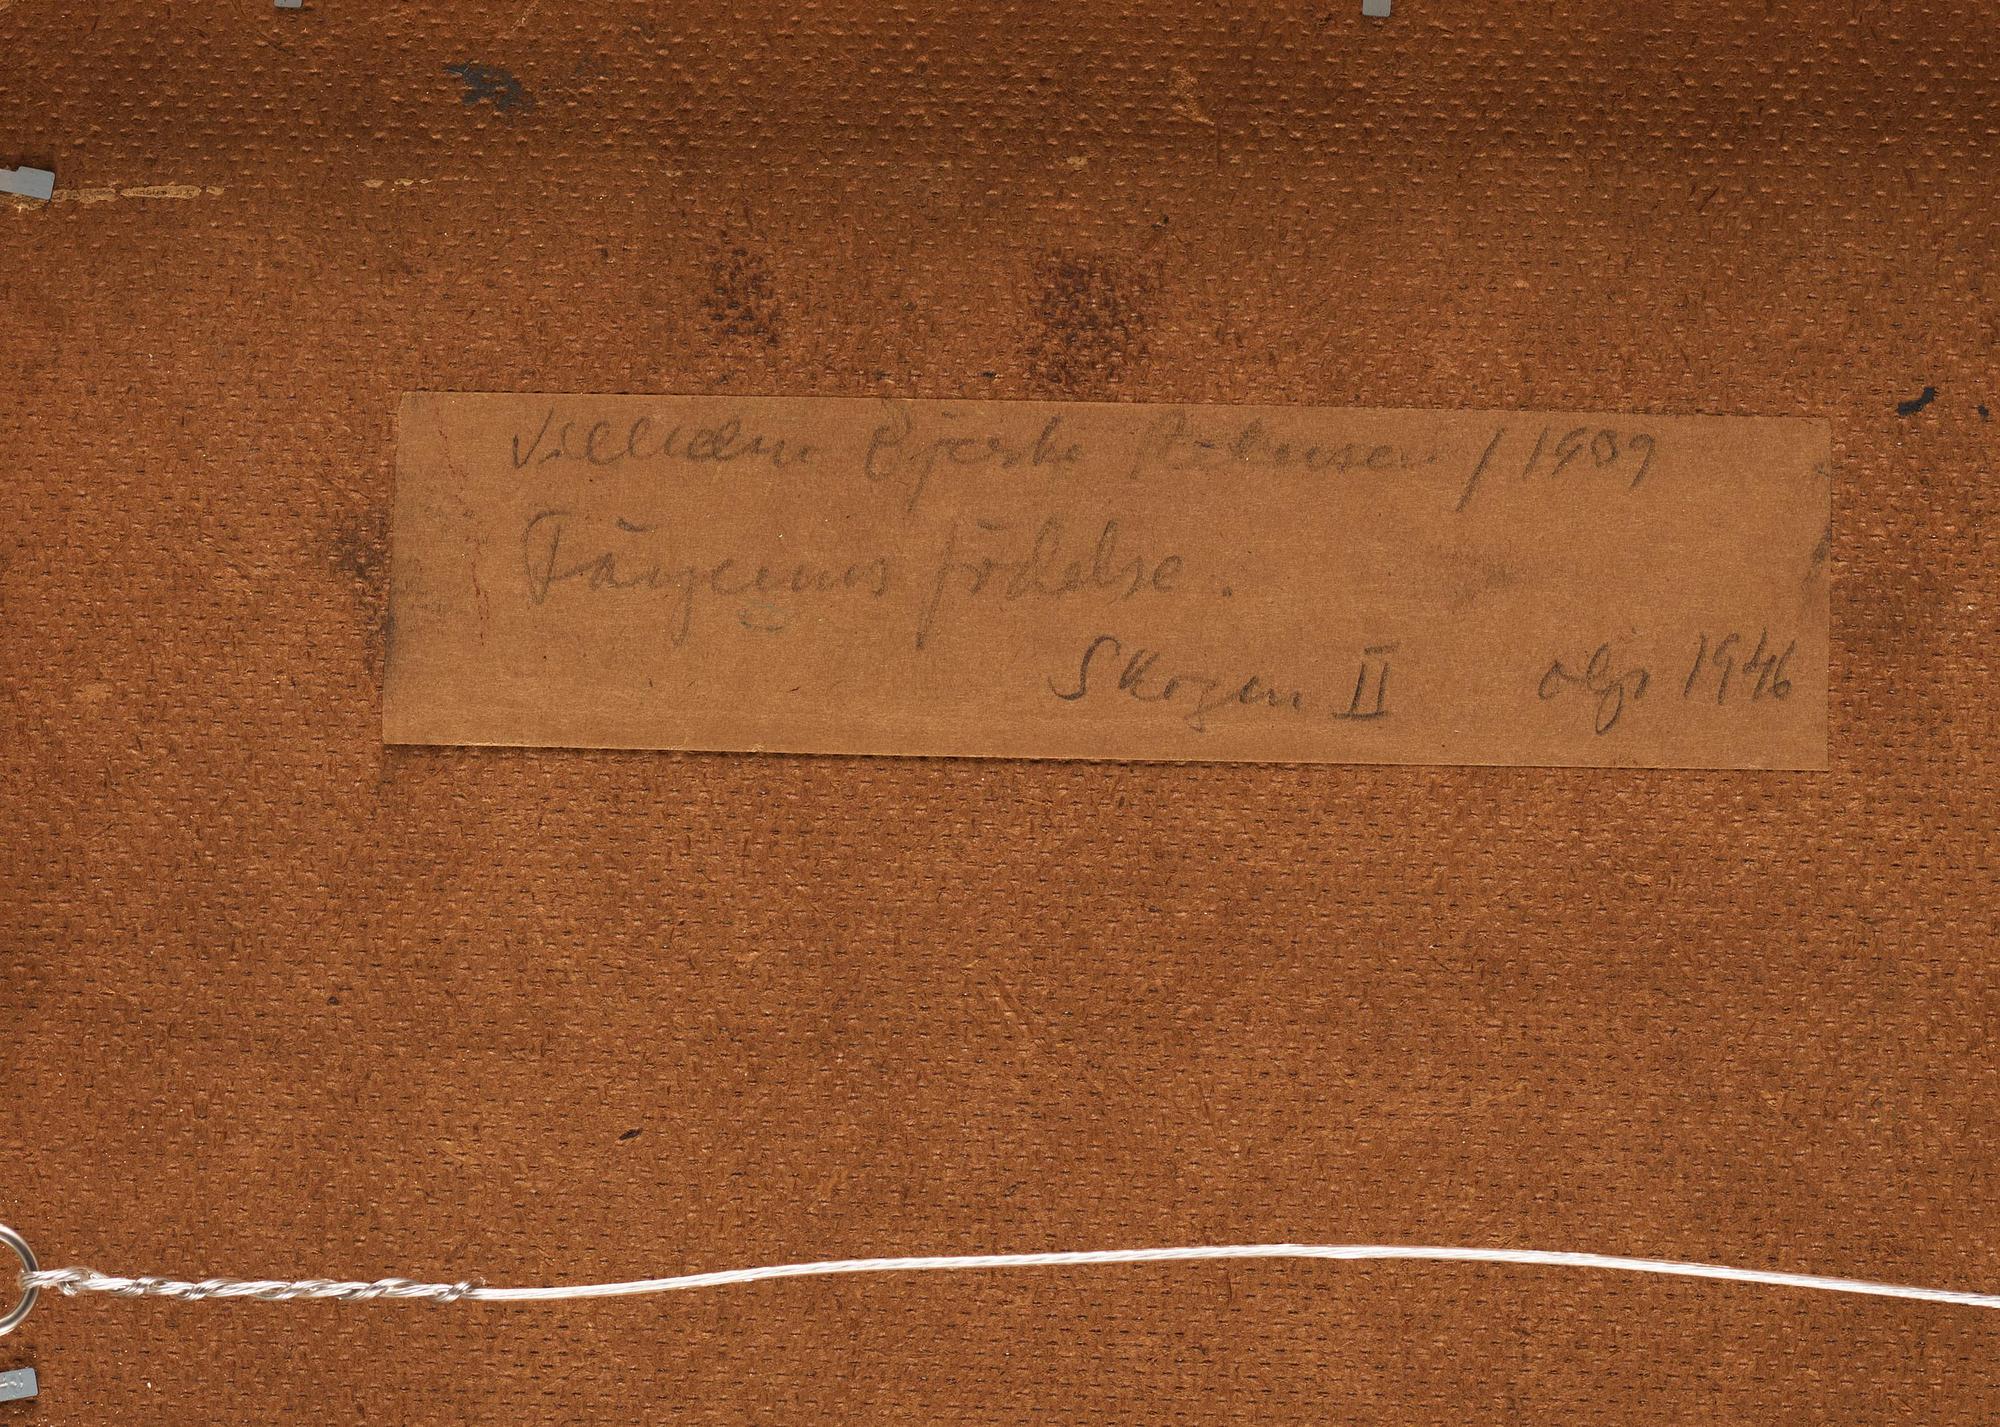 Vilhelm Bjerke Petersen / 1909
Färgernas födelse.
Skogen II olja 1946